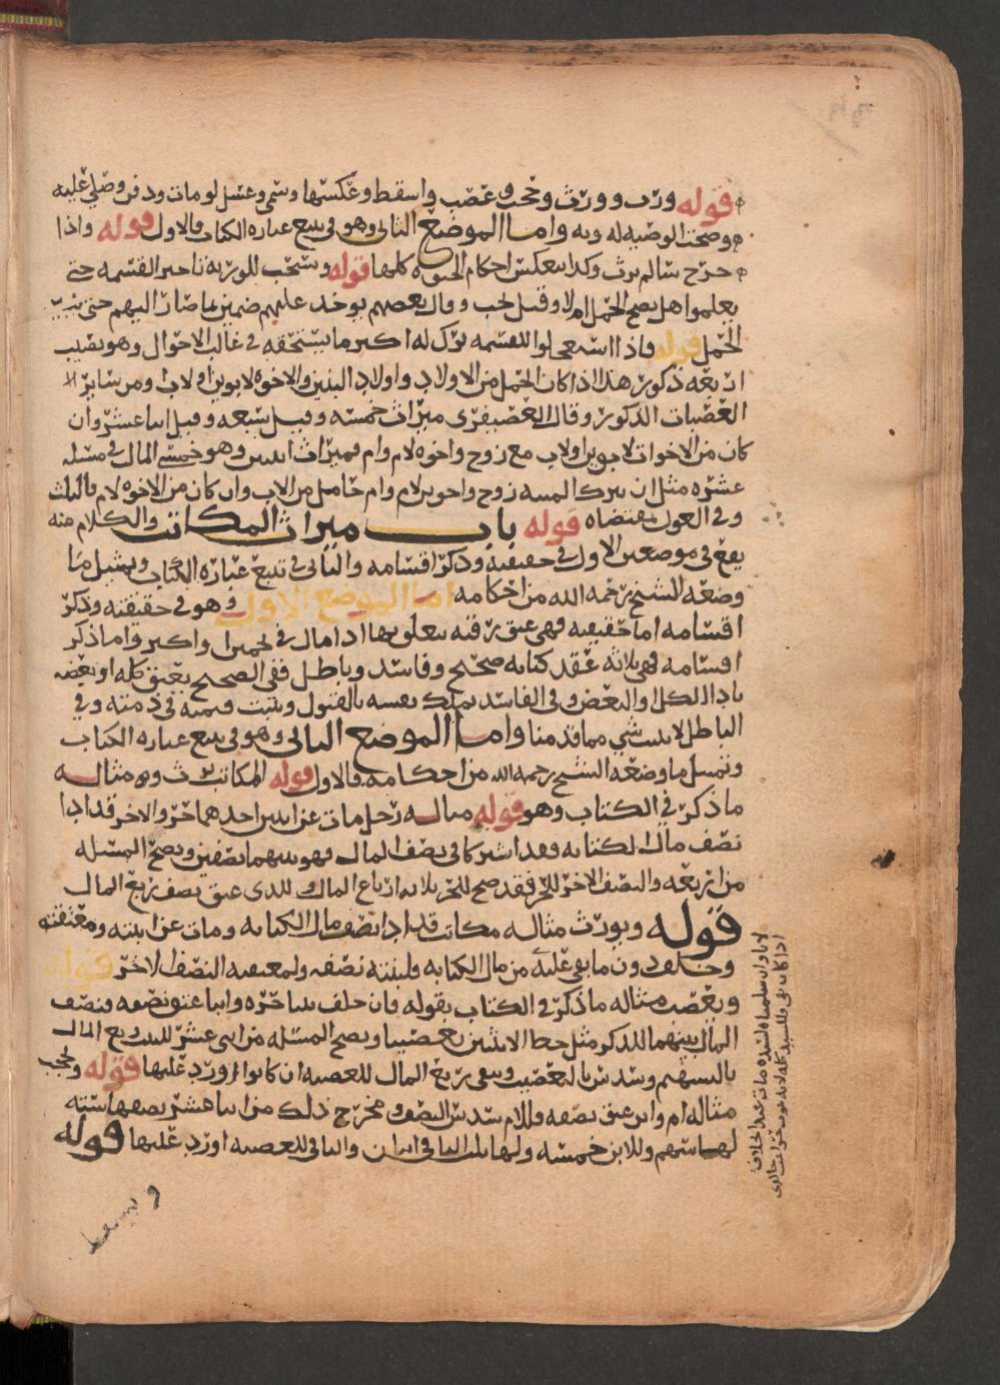 قوله ورث وورث وحجب وعصب واسقط وعكسها وسمى وغسل لو مات ودفن وصلي عليه
وصحت الوصيه له وبه واما الموضع الثاني وهو في تتبع عباره الكتاب فالاول قوله واذا
خرج سالم يرث وكذا ينعكس احكام كلها قوله ويستحب للورثه تاخير القسمه حتى
يعلموا هل يصح الحمل ام لا وقيل يجب وقال بعضهم يوخذ عليهم ضمين بما صار اليهم حتى يتبين
الحمل قوله فاذا استعجلوا القسمه ترك له اكثر ما يستحقه في غالب الاحوال وهو نصيب
اربعه ذكور هذا اذا كان الحمل من الاولاد واولاد البنين والاخوه لابوين او لاب ومن سائر
العصبات الذكور وقال العصيفري ميراث خمسه وقيل سبعه وقيل اثنا عشر وان
كان من الاخوات لابوين او لاب مع زوج واخوه لام وام فميراث اثنتين وهو خمسي المال في مسئله
عشره مثل ان يترك الميت زوج واخوين لام وام حامل من الاب وان كان من الاخوه لام فالثلث
وفي العول مقتضاه قوله باب ميراث المكاتب والكلام منه
يقع في موضعين الاول في حقيقته وذكر اقسامه والثاني في تتبع عباره الكتاب وتمثيل ما
وضعه الشيخ رحمه الله من احكامه اما الموضع الاول وهو في حقيقته وذكر
اقسامه اما حقيقته فهي عتق رقبه يتعلق بها اداء مال في نجمين او اكثر واما ذكر
اقسامه فهي ثلاثه عقد كتابه صحيح وفاسد وباطل ففي الصحيح يعتق كله او بعضه
باداء الكل او البعض وفي الفاسد يملك نفسه بالقبول ويثبت قيمته في ذمته وفي
الباطل لا يثبت شي مما قدمنا واما الموضع الثاني وهو في تتبع عباره الكتاب
وتمثيل ما وضعه الشيخ رحمه الله من احكامه فالاول قوله المكاتب يرث وبه مثاله
ما ذكر في الكتاب وهو قوله مثاله رجل مات عن ابنين احدهما حر والاخر قد ادا
نصف مال الكتابه فقد اشتركا في نصف المال فهو بينهما نصفين وتصح المسئله
من اربعه والنصف الاخر للحر فقد صح للحر ثلاثه ارباع المال وللذي عتق نصفه ربع المال
قوله ويورث مثاله مكاتب قد ادا نصف مال الكتابه ومات عن ابنته ومعتقته
وخلف دون ما بقي عليه من مال الكتابه فلبنته نصفه ولمعتقته النصف الاخر قوله
ويعصب مثاله ما ذكر في الكتاب بقوله فان خلف بنتا حره وابنا عتق نصفه فنصف
المال بينهما للذكر مثل حظ الانثيين تعصيبا وتصح المسئله من اثني عشر للبنت ربع المال
بالتسهيم وسدس بالتعصيب ويبقى ربع المال للعصبه ان كانوا او رد عليها قوله ويحجب
مثاله ام وابن عتق نصفه فللام سدس النصف ومخرج ذلك من اثنا عشر نصفها سته
لها سهم وللابن خمسه ولها ثلث الباقي اثنان والباقي للعصبه او رد عليها قوله
ويسقط